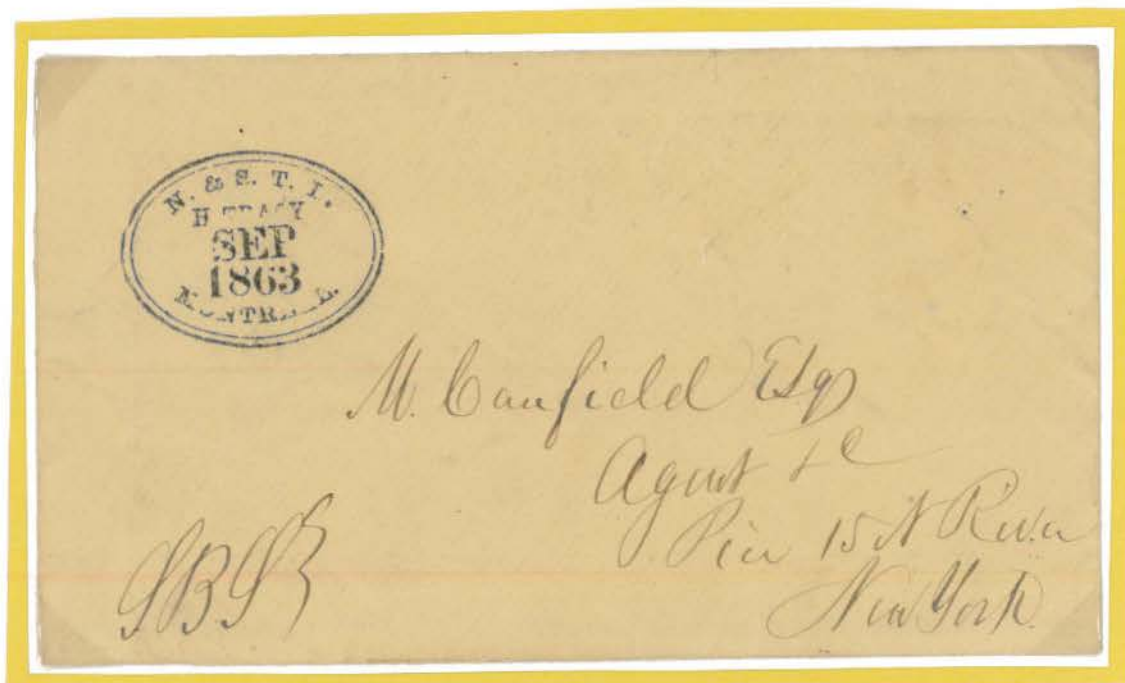 N. & S. T. I.
H. TRACY
SEP
1863
MONTREAL.
M. Canfield Esq
Agent &c
Pier 15 N River
New York